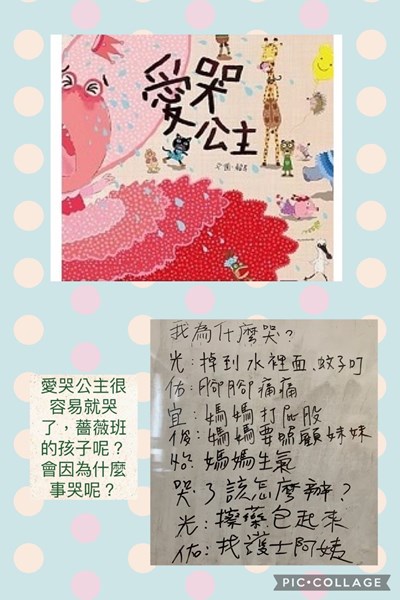 愛哭
公主
文·圖 賴馬
愛哭公主很
容易就哭
了，薔薇班
的孩子呢？
會因為什麼
事哭呢？
我為什麼哭？
光：掉到水裡面、蚊子叮
佑：腳腳痛痛
宜：媽媽打屁股
俊：媽媽要照顧妹妹
怡：媽媽生氣
哭了該怎麼辦？
光：擦藥包起來
佑：找護士阿姨
PIC•COLLAGE